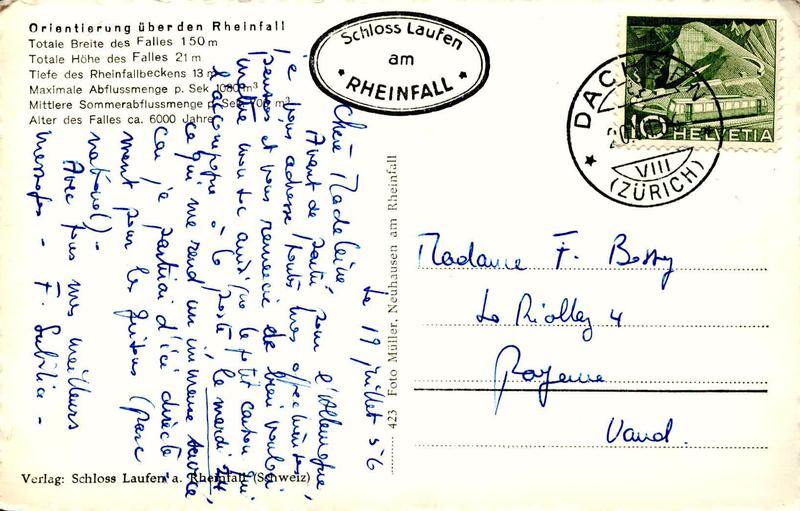 Orientierung über den Rheinfall
Totale Breite des Falles 150 m
Totale Höhe des Falles 21 m
Tiefe des Rheinfallbeckens 13 m
Maximale Abflussmenge p. Sek 1080 m³
Mittlere Sommerabflussmenge p. Sek 700 m³
Alter des Falles ca. 6000 Jahre
Schloss Laufen
am
* RHEINFALL *
DACHSEN
VIII
(ZÜRICH)
10 HELVETIA
Le 19 juillet 56
Chère Madeleine,
Avant de partir pour l'Allemagne,
je vous adresse toutes mes affectueuses
pensées et vous remercie de bien vouloir
mettre mon sac ainsi que le petit carton qui
l'accompagne à la poste le mardi 24
ce qui me rend un immense service
car je partirai d'ici directe-
ment pour les Grisons (Parc
national) -
Avec tous mes meilleurs
messages - F.
Madame F. Bossy
La Riollaz 4
Payerne
Vaud.
423 Foto Müller, Neuhausen am Rheinfall
Verlag: Schloss Laufen a. Rheinfall (Schweiz)